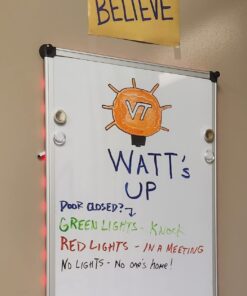 BELIEVE
VT
WATT's
UP
DOOR CLOSED?
GREEN LIGHTS - Knock
RED LIGHTS - IN A MEETING
NO LIGHTS - No one's home!